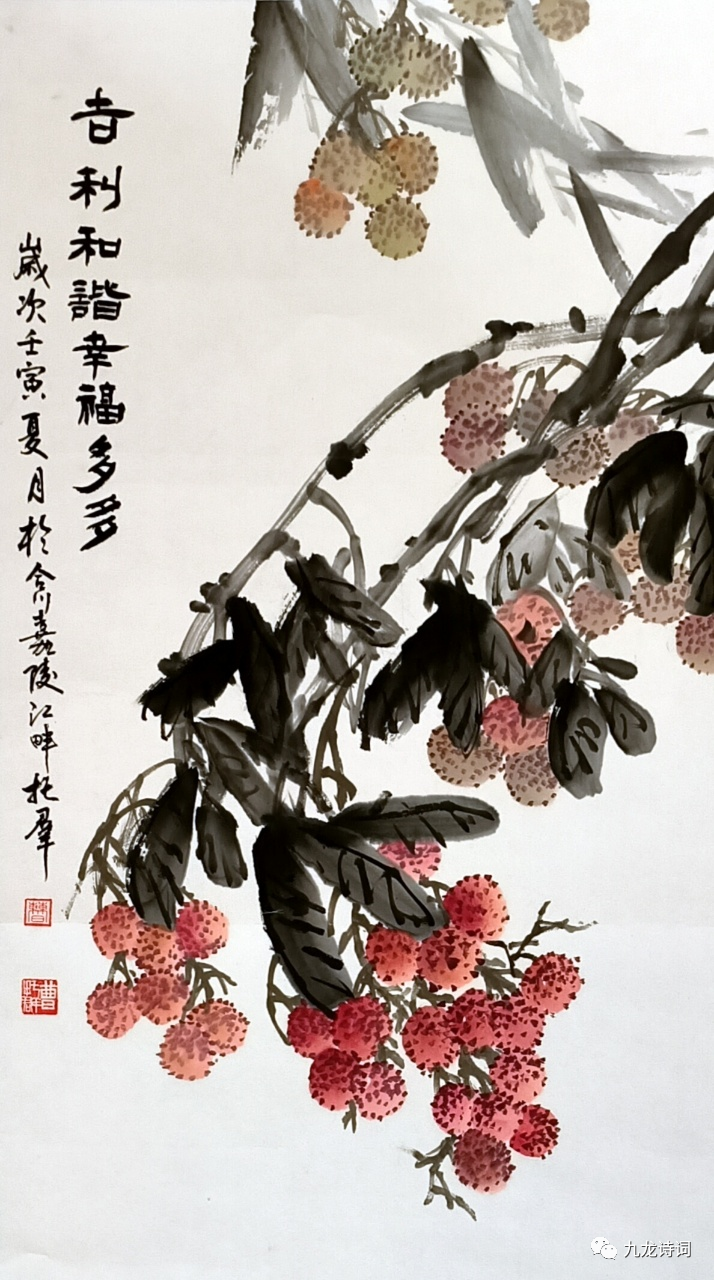 吉利和諧幸福多多
歲次壬寅夏月於合川嘉陵江畔托羣
曹
九龙诗词